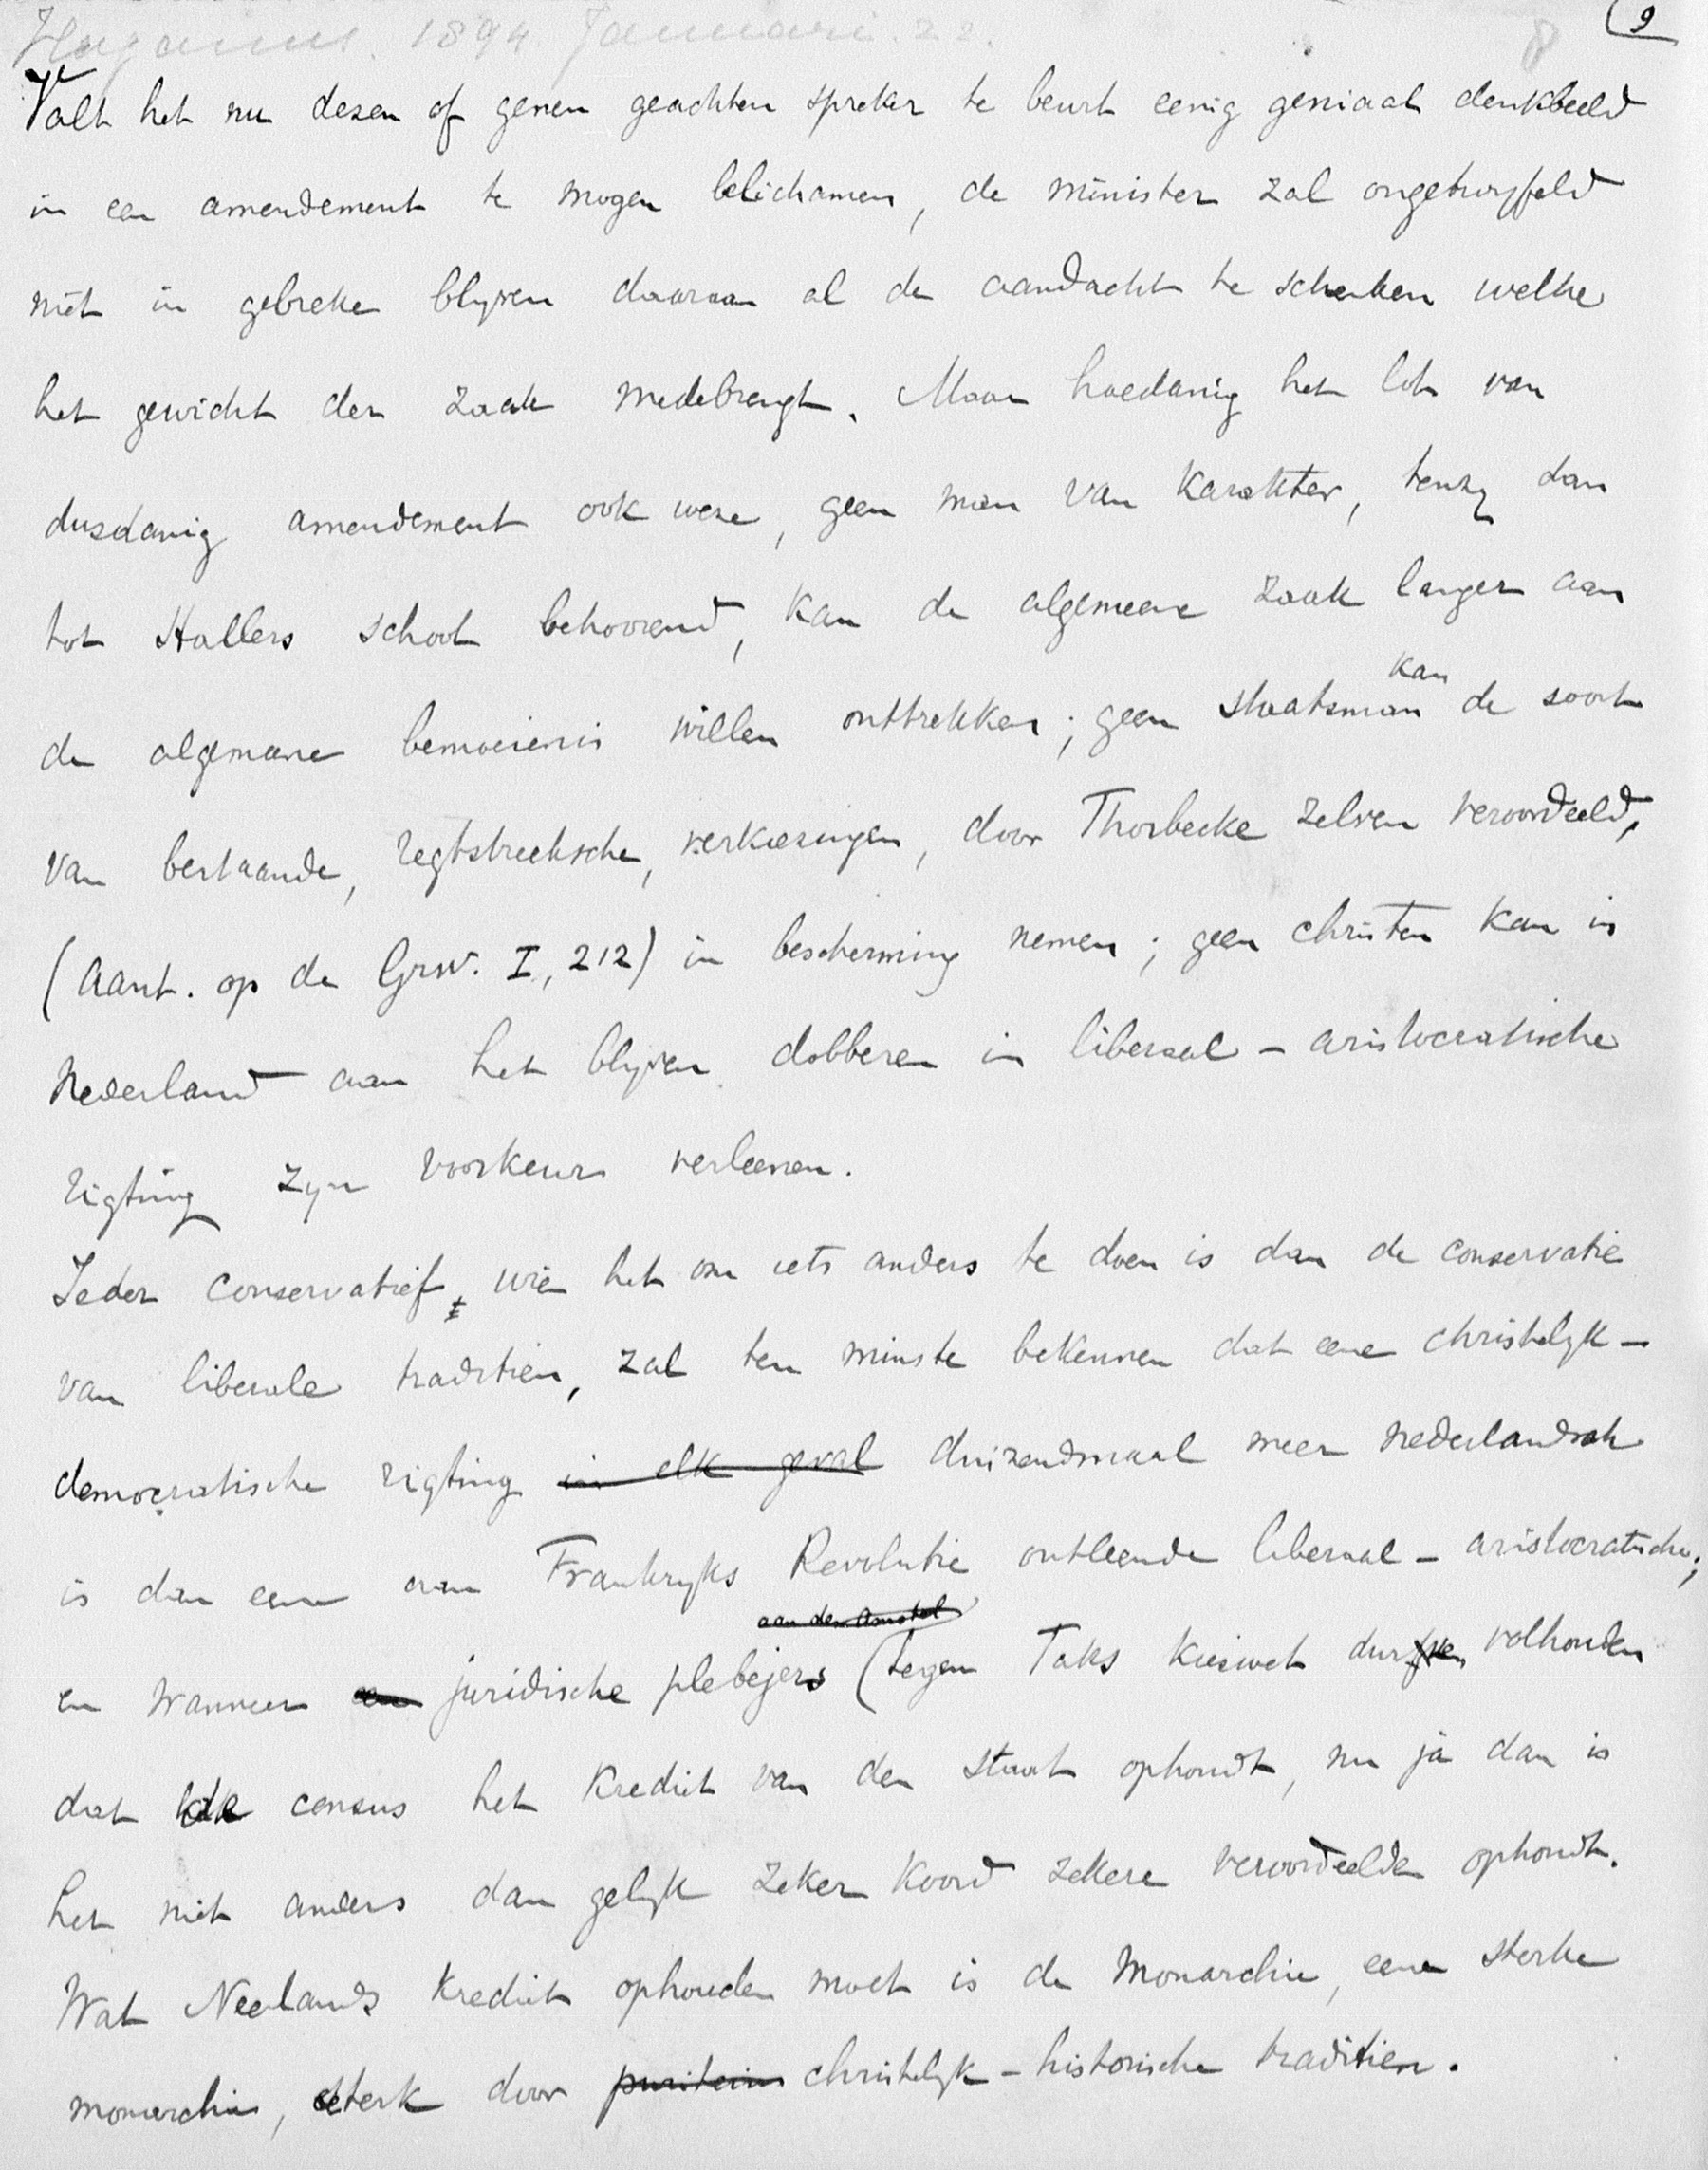 Haganus. 1894 Januari. 22. 8 9
Valt het nu dezen of genen geachten spreker te beurt eenig geniaal denkbeeld
in een amendement te mogen belichamen, de minister zal ongetwyfeld
niet in gebreke blyven daaraan al de aandacht te schenken welke
het gewicht der zaak medebrengt. Maar hoedanig het lot van
dusdanig amendement ook weze, geen man van karakter, tenzy dan
tot Hallers school behoorend, kan de algemeene zaak langer aan
de algemeene bemoeienis willen onttrekken; geen staatsman kan de soort
van bestaande, regtstreeksche, verkiezingen, door Thorbecke zelven veroordeeld,
(Aant. op de Grw. I, 212) in bescherming nemen; geen christen kan in
Nederland aan het blyven dobberen in liberaal-aristocratische
rigting zyn voorkeur verleenen.
Ieder conservatief, wien het om iets anders te doen is dan de conservatie
van liberale tradities, zal ten minste bekennen dat eene christelyk-
democratische rigting in elk geval duizendmaal meer nederlandsch
is dan eene aan Frankryks Revolutie ontleende liberaal-aristocratische;
aan den Amstel
en wanneer een juridische plebejers (tegen Taks kieswet durven volhouden
dat de census het krediet van den staat ophoudt, nu ja dan is
het niet anders dan gelyk zeker koord zekere veroordeelde ophoudt.
Wat Neerlands krediet ophouden moet is de Monarchie, eene sterke
monarchie, sterk door puriteins christelyk-historische tradities.